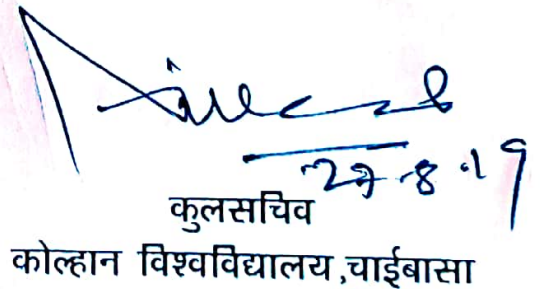 27.8.19
कुलसचिव
कोल्हान विश्वविद्यालय,चाईबासा